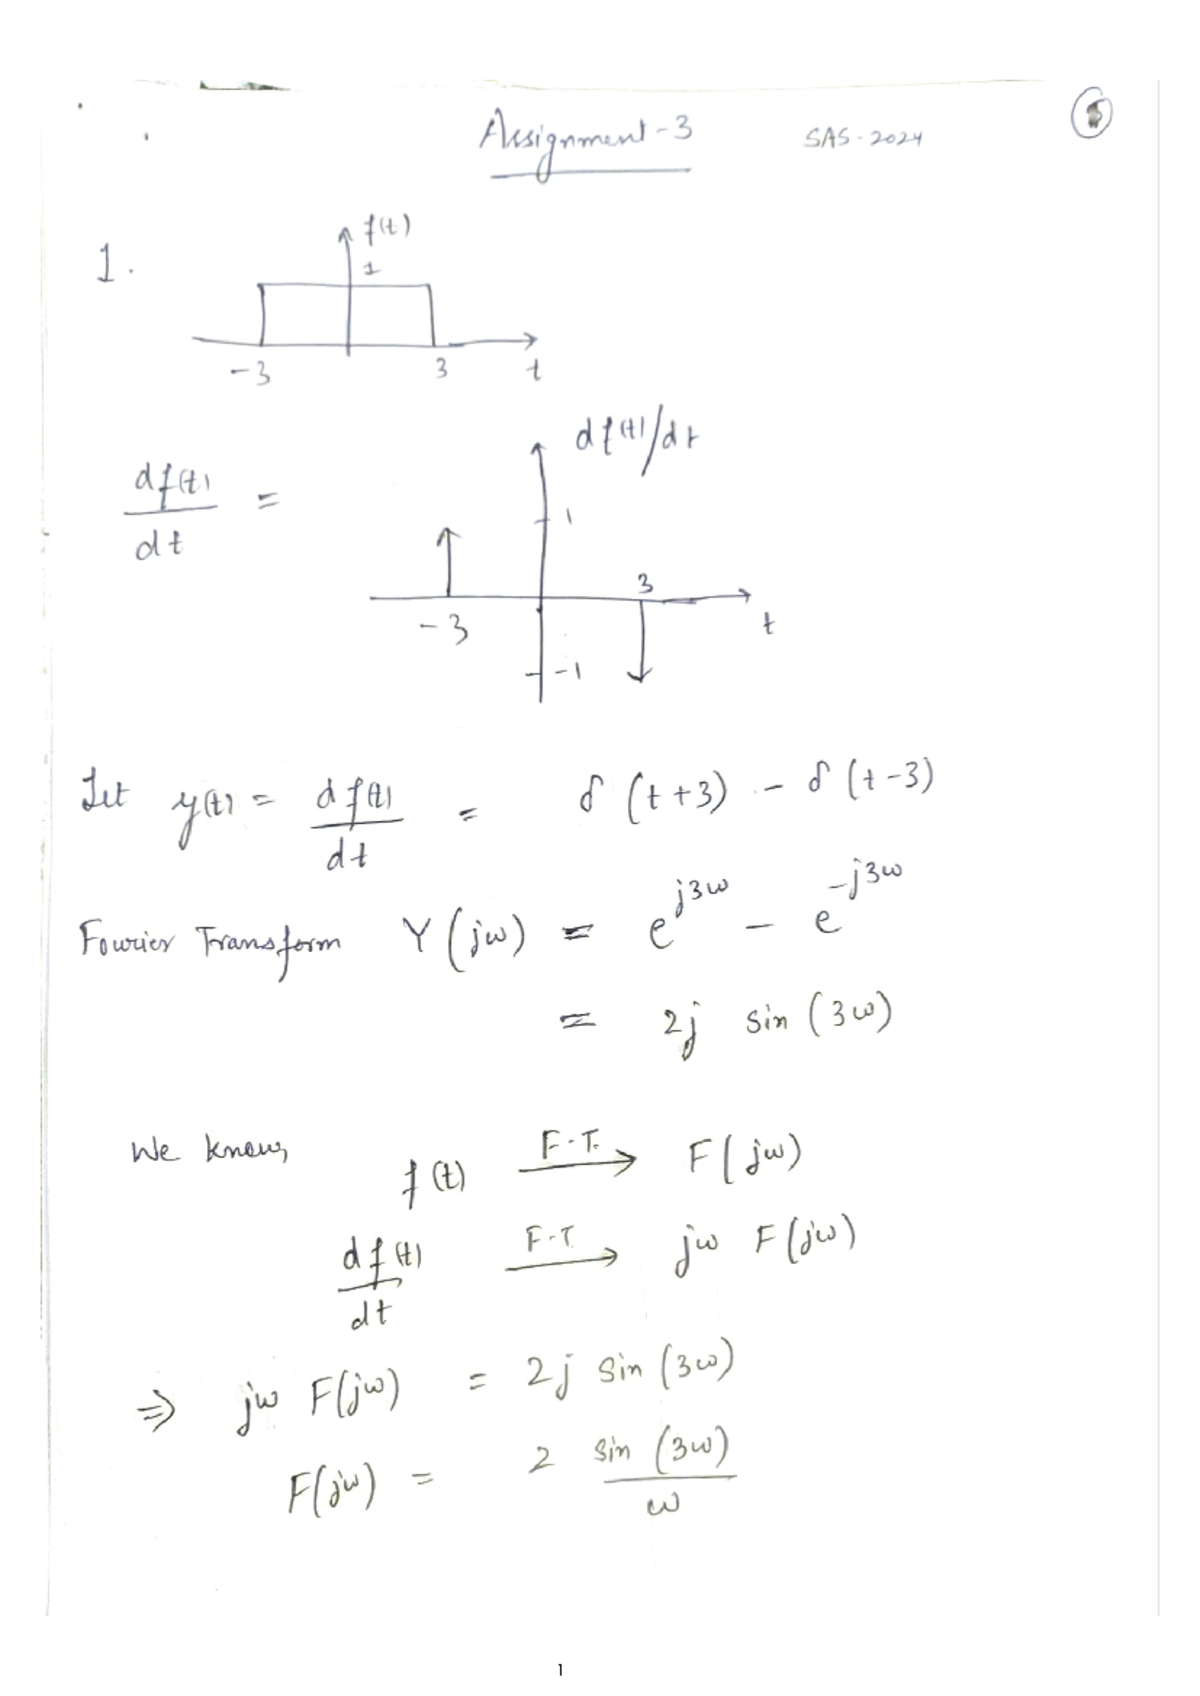 Assignment-3
SAS-2024
1.
f(t)
1
-3 3 t
df(t)/dt
df(t)/dt =
1
3
-3
t
-1
Let y(t) = df(t)/dt = δ(t+3) - δ(t-3)
Fourier Transform Y(jω) = e^{j3ω} - e^{-j3ω}
= 2j sin(3ω)
We know,
f(t) F.T. → F(jω)
df(t)/dt F.T → jω F(jω)
⇒ jω F(jω) = 2j sin(3ω)
F(jω) = 2 sin(3ω)/ω
1